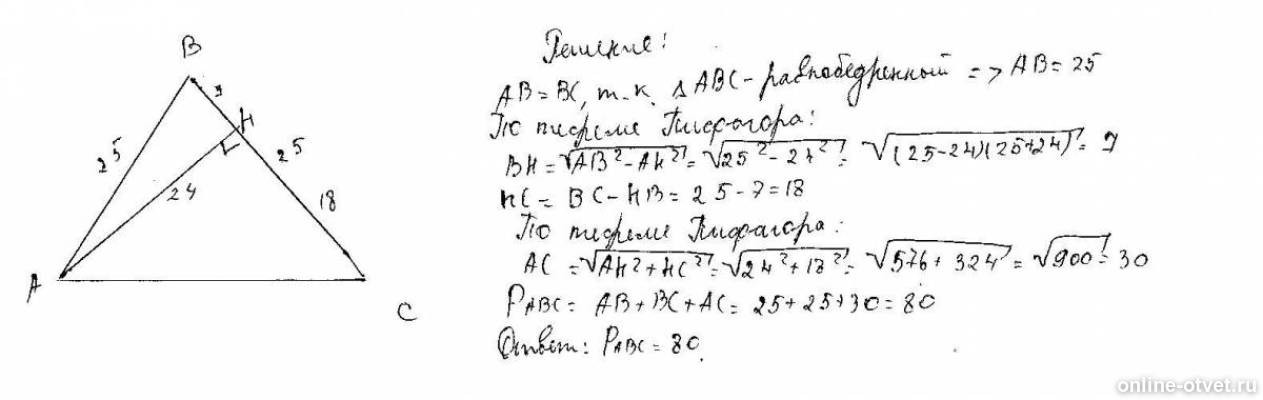 B
7
H
25
25
24
18
A
C
Решение:
AB = BC, т.к. △ABC - равнобедренный => AB = 25
По теореме Пифагора:
BH = √AB² - AH² = √25² - 24² = √(25-24)(25+24) = 7
HC = BC - HB = 25 - 7 = 18
По теореме Пифагора:
AC = √AH² + HC² = √24² + 18² = √576 + 324 = √900 = 30
PABC = AB + BC + AC = 25 + 25 + 30 = 80
Ответ: PABC = 80.
online-otvet.ru